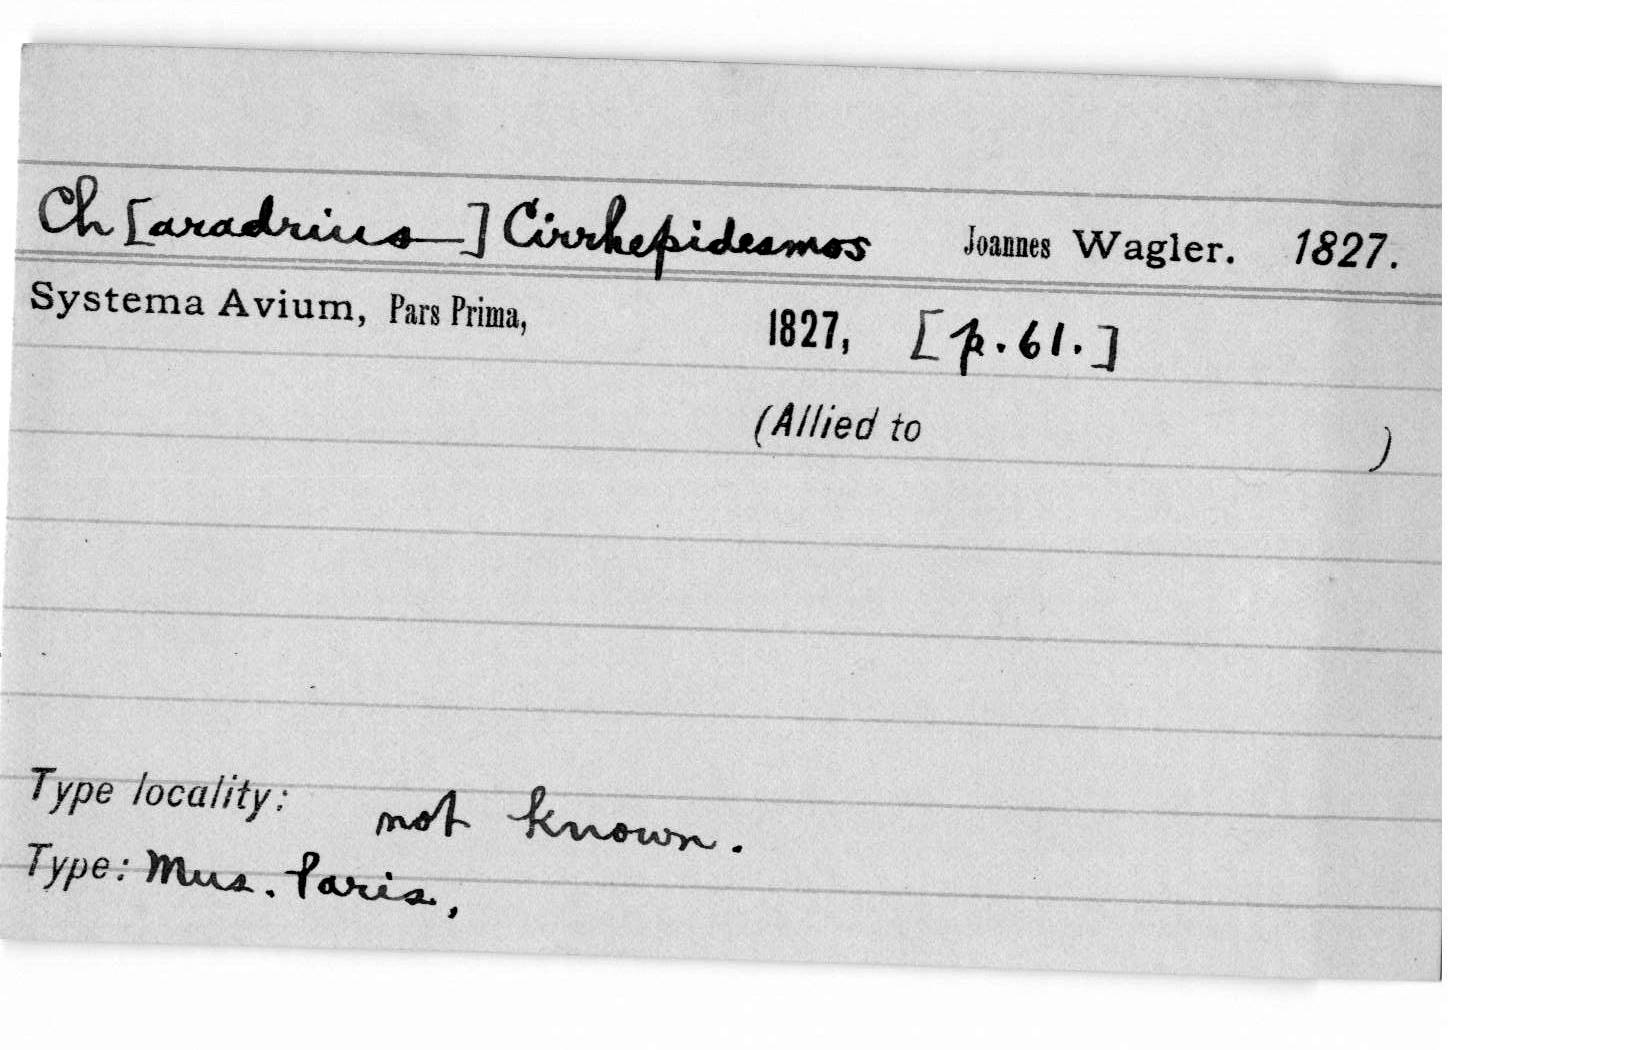 Ch[aradrius] Cirrhepidesmos Joannes Wagler. 1827.
Systema Avium, Pars Prima, 1827, [p.61.]
(Allied to )
Type locality: not known.
Type: Mus. Paris.,